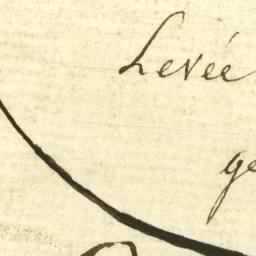 Levée
ge